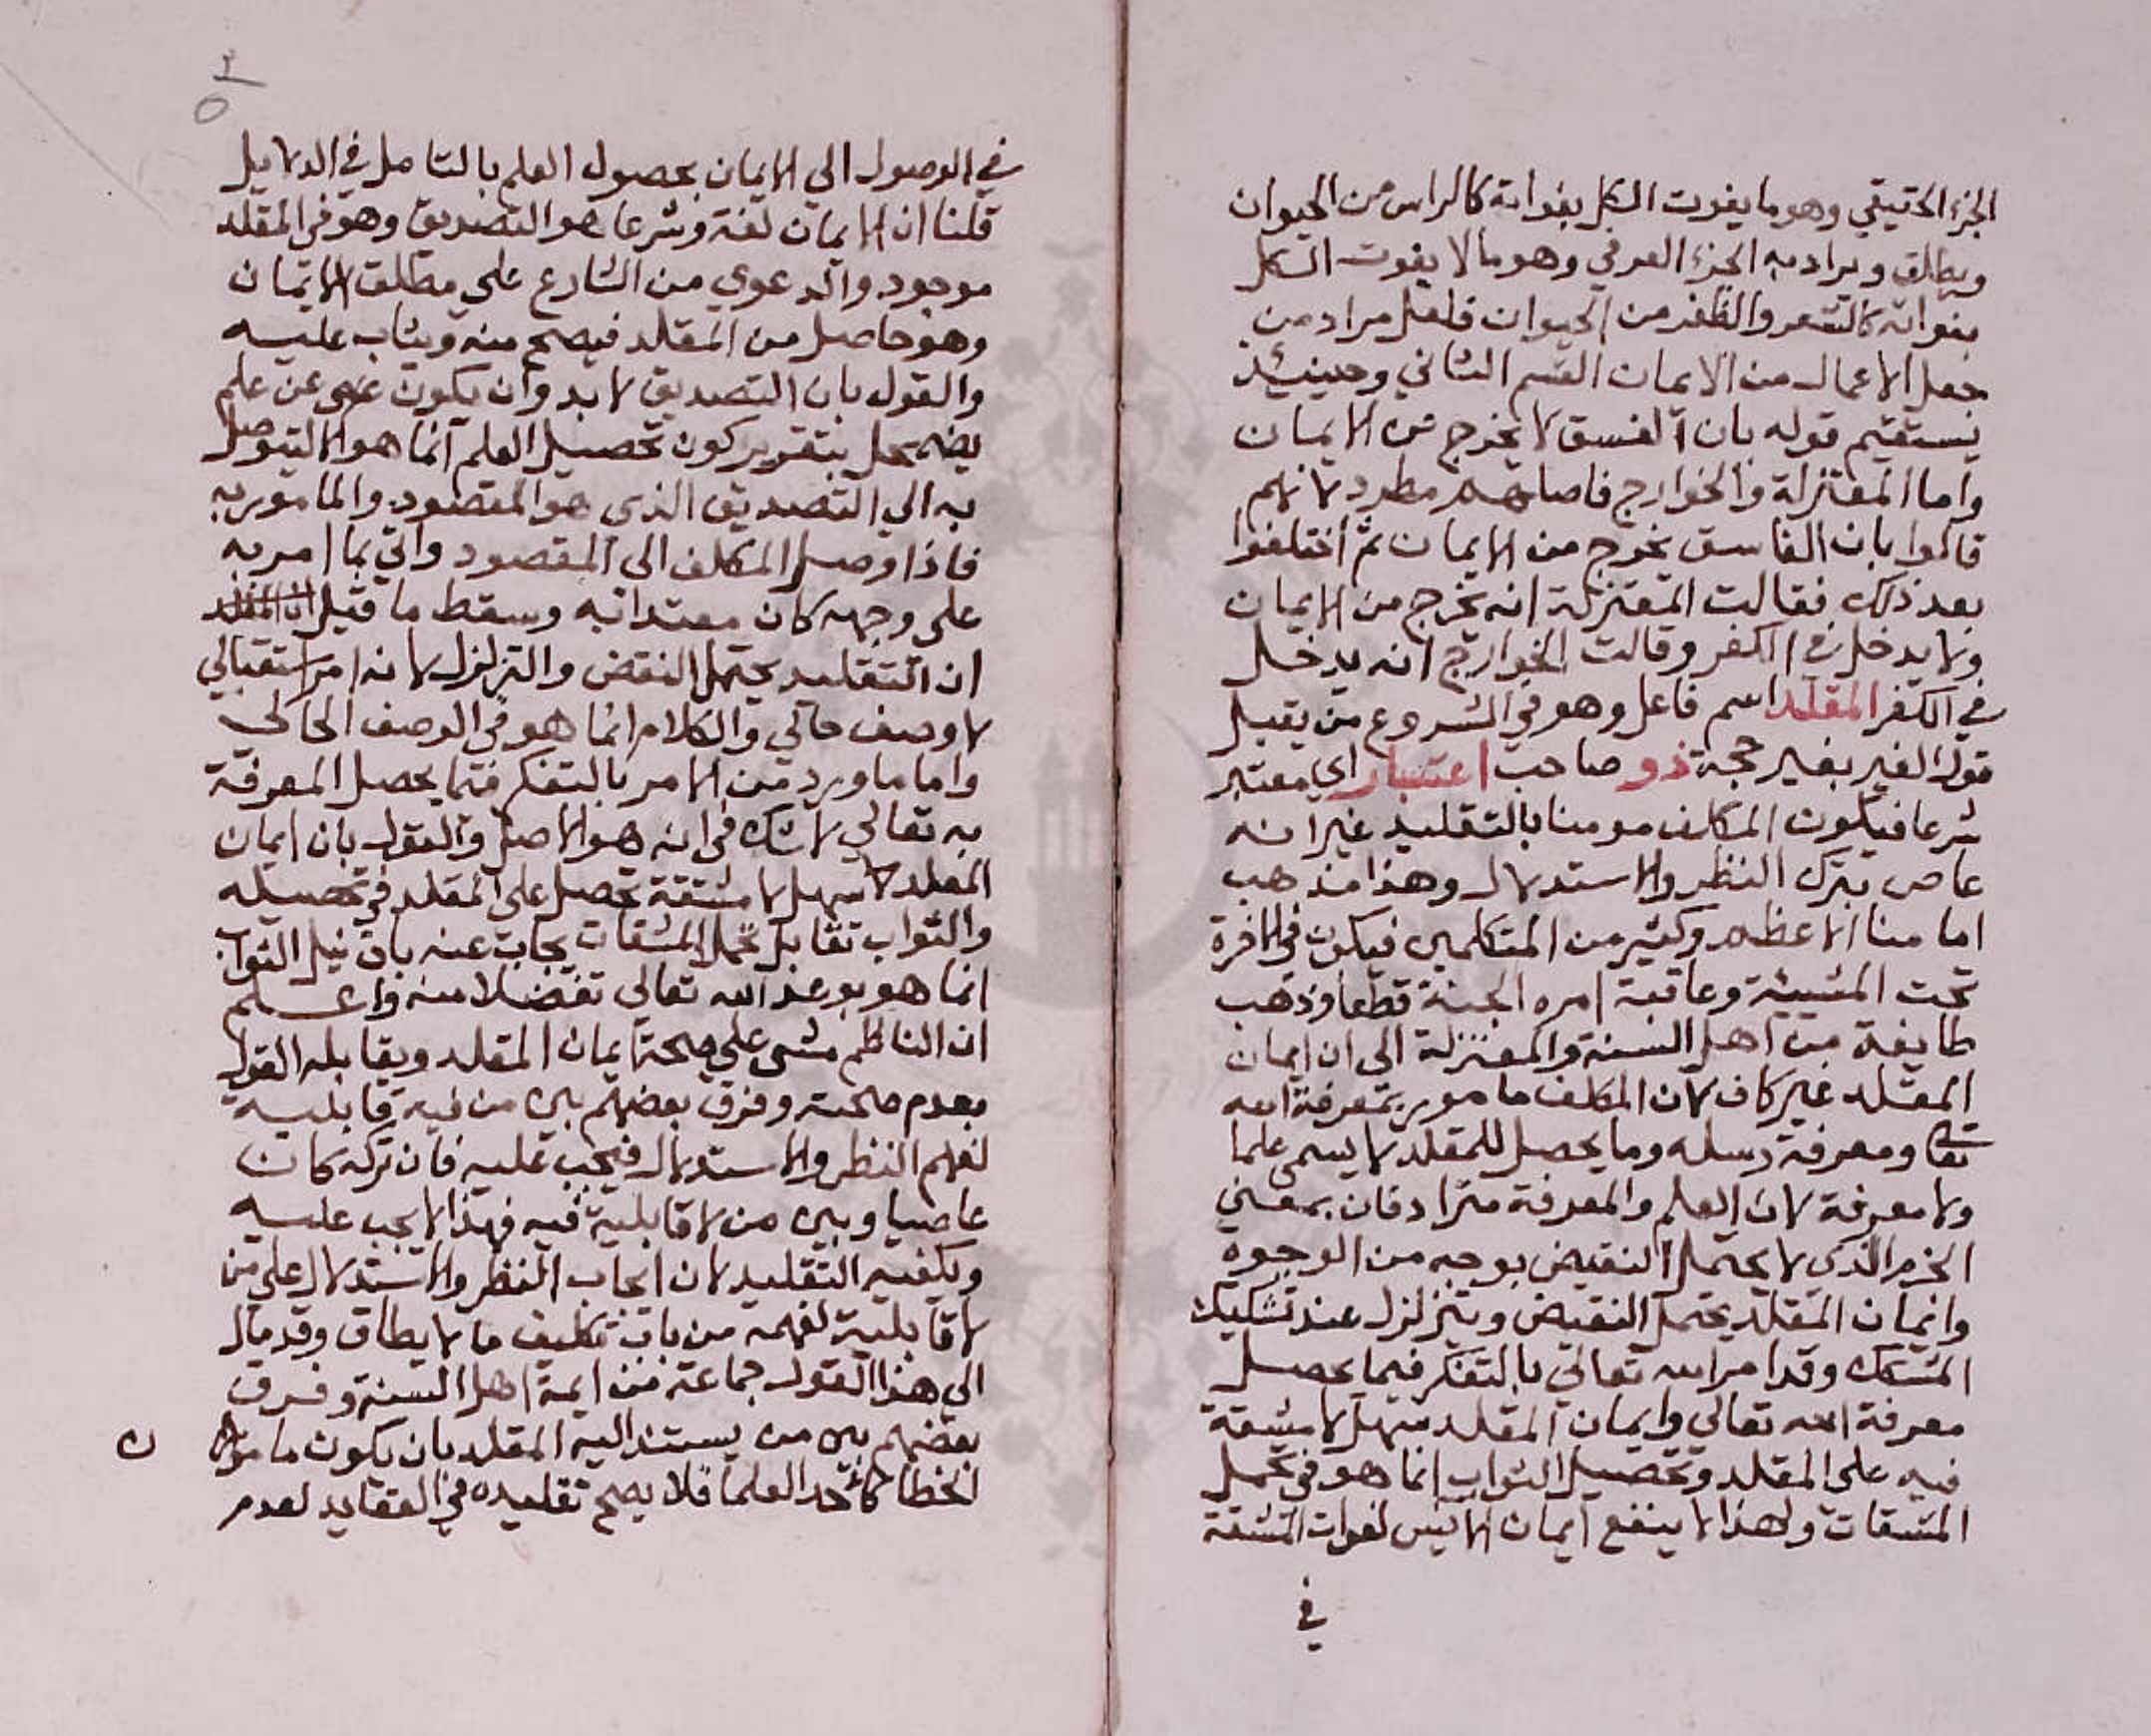 الجزء الحقيقي وهو ما يفوت الكل بفواته كالراس من الحيوان
ويطلق ويراد به الجزء العرفي وهو ما لا يفوت الكل
بفواته كالشعر والظفر من الحيوان فلعل مراد من
جعل الاعمال من الايمان القسم الثاني وحينئذ
يستقيم قوله بان الفسق لا يخرج عن الايمان
واما المعتزلة والخوارج فاصلهم مطرد لانهم
قالوا بان الفاسق يخرج من الايمان ثم اختلفوا
بعد ذلك فقالت المعتزلة انه يخرج من الايمان
ولا يدخل في الكفر وقالت الخوارج انه يدخل
في الكفر المقلد اسم فاعل وهو في الشروع من يقبل
قول الغير بغير حجة ذو صاحب اعتبار اي معتبر
شرعا فيكون المكلف مومنا بالتقليد غير انه
عاص بترك النظر والاستدلال وهذا مذهب
امامنا الاعظم وكثير من المتكلمين فيكون في الاخرة
تحت المشيئة وعاقبة امره الجنة قطعا وذهب
طايفة من اهل السنة والمعتزلة الى ان ايمان
المقلد غير كاف لان المكلف مامور بمعرفة الله
تعا ومعرفة رسله وما يحصل للمقلد لا يسمى علما
ولا معرفة لان العلم والمعرفة مترادفان بمعني
الجزم الذي لا يحتمل النقيض بوجه من الوجوه
وايمان المقلد يحتمل النقيض ويتزلزل عند تشكيك
المشكك وقد امر الله تعالي بالتفكر فيما يحصل
معرفة الله تعالي وايمان المقلد سهل لا مشقة
فيه على المقلد وتحصيل الثواب انما هو في تحمل
المشقات ولهذا لا ينفع ايمان الايس لفوات المشقة
في
٢
٥
في الوصول الي الايمان بحصول العلم بالتامل في الدلايل
قلنا ان الايمان لغة وشرعا هو التصديق وهو في المقلد
موجود والدعوي من الشارع علي مطلق الايمان
وهو حاصل من المقلد فيصح منه ويثاب عليه
والقول بان التصديق لا بد وان يكون عن علم
يضمحل بتقرير كون تحصيل العلم انما هو الا ليتوصل
به الي التصديق الذي هو المقصود والمامور به
فاذا وصل المكلف الى المقصود واتي بما امر به
على وجهه كان معتدا به وسقط ما قيل ان المقلد
ان التقليد يحتمل النقض والتزلزل لانه امر استقبالي
لا وصف حالي والكلام انما هو في الوصف الحالي
واما ما ورد من الامر بالتفكر فيما يحصل المعرفة
به تعالي لا شك في انه هو الاصل والقول بان ايمان
المقلد سهل لا مشقة تحصل على المقلد في تحصيله
والثواب تقابل تحمل المشقات يجاب عنه بان نيل الثواب
انما هو بوعد الله تعالي تفضلا منه واعلم
ان الناظم مشى علي صحة ايمان المقلد ويقابله القول
بعدم صحته وفرق بعضهم بين من فيه قابلية
لفهم النظر والاستدلال فيجب عليه فان تركه كان
عاصيا وبين من لا قابلية فيه فهذا لا يجب عليه
ويكفيه التقليد لان ايجاب النظر والاستدلال على من
لا قابلية لفهمه من باب تكليف ما لا يطاق وقد مال
الى هذا القول جماعة من ايمة اهل السنة وفرق
بعضهم بين من يستند اليه المقلد بان يكون مامون
ن
الخطا كاحد العلما فلا يصح تقليده في العقايد لعدم